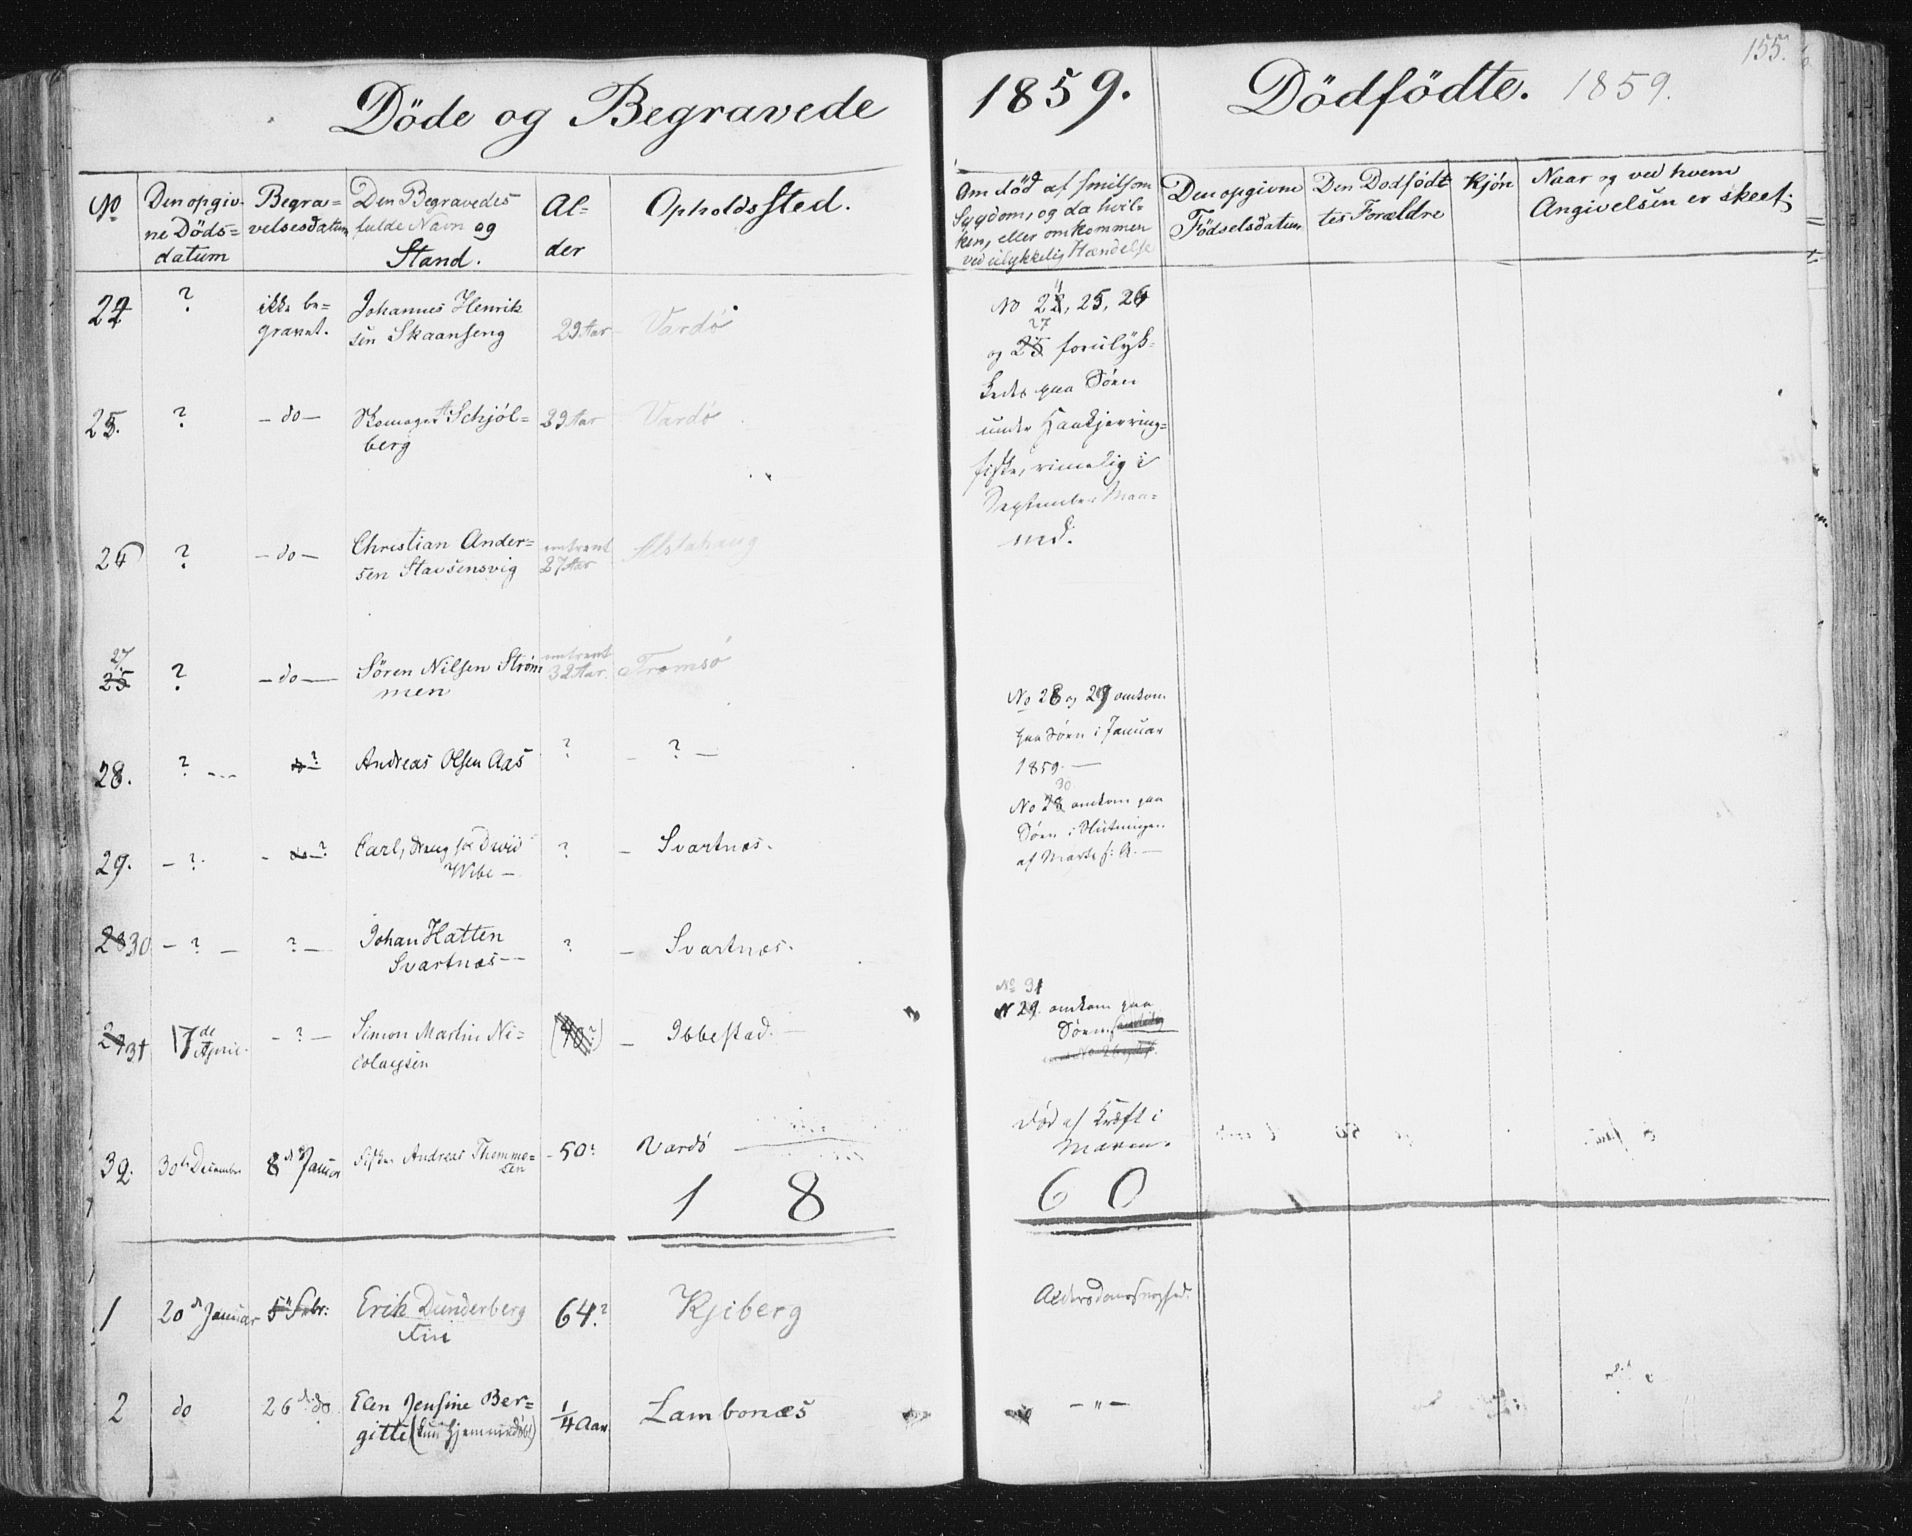 155.
Döde og Begravede 1859. Dödfödte. 1859.
No
Den opgiv-
ne Döds-
datum
Begra-
velsesdatum
Den Begravedes
fulde Navn og
Stand.
Al-
der
Opholdssted.
Om död af smitsom
Sygdom, og da hvil-
ken, eller omkommen
ved ulykkelig Hændelse
Den opgivne
Födselsdatum
Den Dodfödt
tes Forældre
Kjön
Naar og ved hvem
Angivelsen er skeet.
24 ? ikke be-
gravet.
Johannes Henrik
sen Skaanseng
29 Aar Vardö
No 24, 25, 26
27
og 25 forulyk-
kedes paa Söen
under Haakjerring-
fiske, rimelig i
September Maa-
ned.
25. ? - do - Schjöl-
berg
29 Aar Vardö
26 ? - do - Christian Ander-
sen Stavsensvig
omtrent
27 Aar
Alstahaug
27.
25 ? - do - Sören Nilsen Ström
men
omtrent
32 Aar. Tromsö
28. ? ? Andreas Olsen Aas ? - ? -
No 28 og 29 omkom
paa Söen i Januar
1859. -
29. - ? - ? Carl,
Wibe -
? - Svartnæs.
30.
No 28 omkom paa
Söen i Slutningen
af Marts f: A. -
28 30 - ? - ? - Johan Hatten
Svartnæs -
? - Svartnæs.
29 31 17 de
April. - ? - Simon Martin Ni-
colaysen
- Ibbestad. -
No 31
N 29. omkom paa
Söen
32. 30 te December 8 d Januar Fisker Andreas Thomme-
sen
- 50? Vardö
Död af Kræft i
Maven.
1 8 6 0
1 20 d Januar 5 Febr: Erik Dunderberg
Fin
64? Kjiberg
Alderdomssvaghed.
2 do 26 d. do. Elen Jensine Ber-
gitte (kun hjemmedöbt)
1/4 Aar Lambonæs - " -